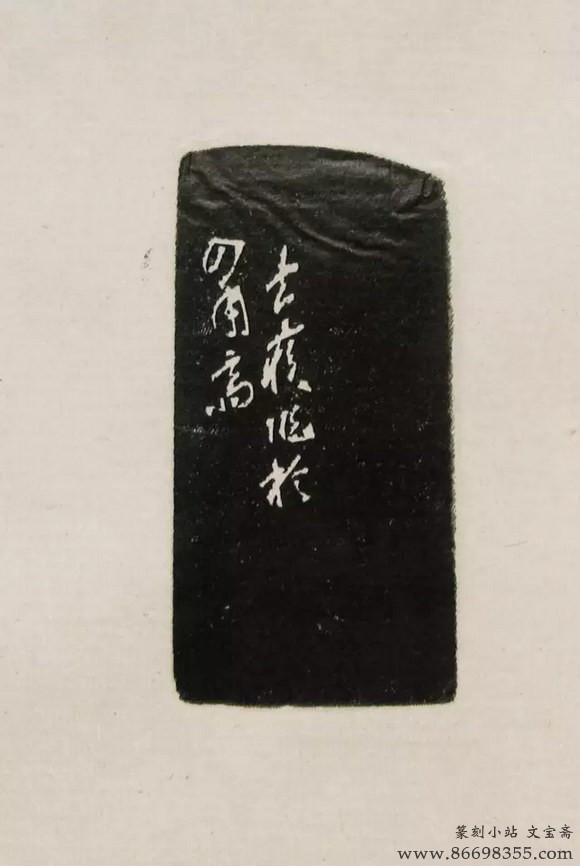 去疾於
四角亭
篆刻小站 文宝斋
www.86698355.com